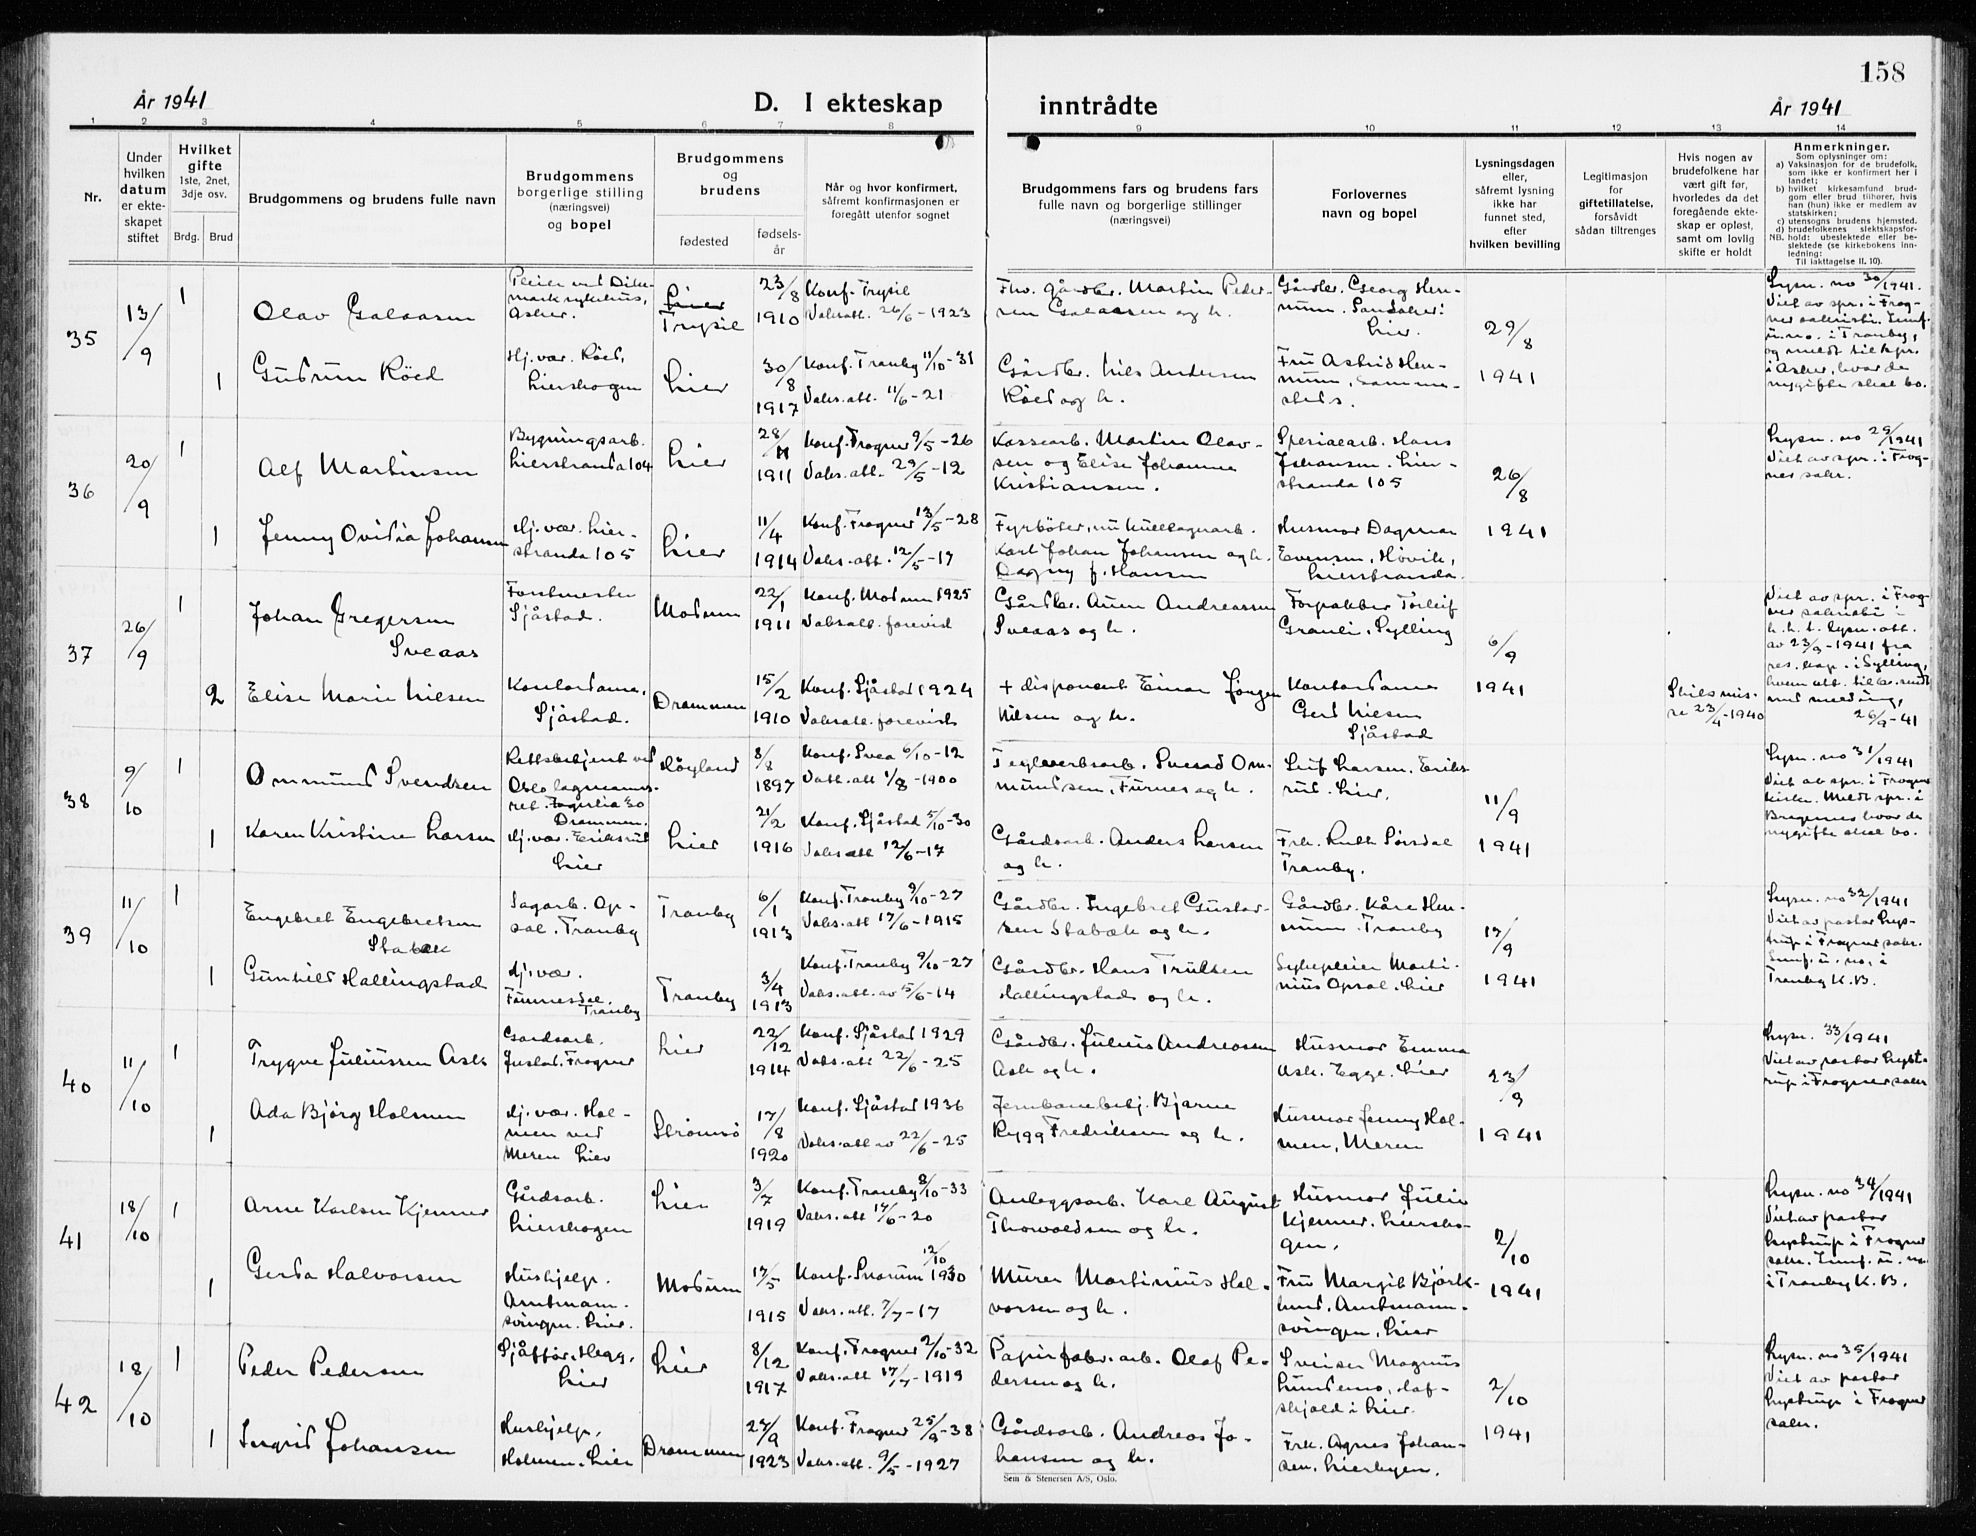 158
År 1941
D. I ekteskap inntrådte
År 1941
1 2 3 4 5 6 7 8 9 10 11 12 13 14
Nr.
Under hvilken datum er ekteskapet stiftet
Hvilket gifte 1ste, 2net, 3dje osv.
Brdg. Brud
Brudgommens og brudens fulle navn
Brudgommens borgerlige stilling (næringsvei) og bopel
Brudgommens og brudens
fødested
fødselsår
Når og hvor konfirmert, såfremt konfirmasjonen er foregått utenfor sognet
Brudgommens fars og brudens fars fulle navn og borgerlige stillinger (næringsvei)
Forlovernes navn og bopel
Lysningsdagen eller, såfremt lysning ikke har funnet sted, efter hvilken bevilling
Legitimasjon for giftetillatelse, forsåvidt sådan tiltrenges
Hvis nogen av brudefolkene har vært gift før, hvorledes da det foregående ekteskap er opløst, samt om lovlig skifte er holdt
Anmerkninger.
Som oplysninger om:
a) Vaksinasjon for de brudefolk, som ikke er konfirmert her i landet;
b) hvilket kirkesamfund brudgom eller brud tilhører, hvis han (hun) ikke er medlem av statskirken;
c) utensogns brudens hjemsted.
d) brudefolkenes slektskapsforhold: ubeslektede eller beslektede (se kirkebokens innledning:
NB. Til iakttagelse II, 10).
35
13/9
1
Olav Galaasen
Pleier ved Dikemark sykehus, Asker.
Lier
Trysil
23/8 1910
Konf. Trysil
Vaks.att. 26/6-1923
Fhv. gårdbr. Martin Pedersen Galaasen og h.
Gårdbr. Georg Hennum. Sandaker i Lier.
29/8 1941
Lysn. no 30/1941.
1
Gudrun Röed
Hj. vær. Röed, Lierskogen
Lier
30/8 1917
Konf. Tranby 11/10-31
Vaks.att. 11/6-21
Gårdbr. Nils Andersen Röed og h.
Fru Astrid Hennum, sammesteds.
36
20/9
1
Alf Martinsen
Bygningsarb. Lierstranda 104
Lier
28/11 1911
Konf. Frogner 9/5-26
Vaks.att. 29/5-12
Kassearb. Martin Olavsen og Elise Johanne Kristiansen.
Spesialarb. Hans Johansen. Lierstranda 105
26/8 1941
Lysn. no 29/1941
Viet av spr. i Frogner sakr.
1
Jenny Ovidia Johansen
Hj. vær. Lierstranda 105
Lier
11/4 1914
Konf. Frogner 13/5-28
Vaks.att. 12/5-17
Karl Johan Johansen og h. Dagny f. Hansen
Husmor Dagmar Evensen, Høvik, Lierstranda.
37
26/9
1
Johan Gregersen Sveaas
Forstmester Sjåstad.
Modum
22/1 1911
Konf. Modum 1925
Vaksatt. forevist
Gårdbr. Aren Andreassen Sveaas og h.
Forpakter Torleif Granli, Sylling
6/9 1941
2
Elise Marie Nilsen
Kontordame, Sjåstad.
Drammen
15/2 1910
Konf. Sjåstad 1924
Vaksatt. forevist
+ disponent Einar Jørgen Nilsen og h.
Kontordame Gerd Nilsen Sjåstad
Skilsmisse 23/4-1940
26/9-41
38
9/10
1
Ommund Svendsen
Rettsbetjent ved Oslo lagmannsret. Fagerlia 30 Drammen.
Höyland
8/8 1897
Konf. Svea 6/10-12
Vakt.att 1/8-1900
Teglverksarb. Svend Ommundsen, Furnes og h.
Leif Larsen. Eriksrud. Lier.
11/9 1941
Lysn. no 31/1941
1
Karen Kristine Larsen
Hj. vær. Eriksrud Lier
Lier
21/2 1916
Konf. Sjåstad 5/10-30
Vaks att 12/6-17
Gårdsarb. Anders Larsen og h.
Frk. Ruth Sørsdal Tranby.
39
11/10
1
Engebret Engebretsen Stabæk
Sagarb. Opsal. Tranby
Tranby
6/1 1913
Konf. Tranby 9/10-27
Vaks.att 17/6-1915
Gårdbr. Engebret Gustavsen Stabæk og h.
Gårdbr. Kåre Hennum. Tranby
17/9 1941
Lysn. no 32/1941
1
Gunhild Hallingstad
Hj. vær.
Tranby
Tranby
3/4 1913
Konf. Tranby 9/10-27
Vaks.att. av 15/6-14
Gårdbr. Hans Trulsen Hallingstad og h.
Sykepleier Martinius Opsal. Lier
Tranby K.B.
40
11/10
1
Trygve Juliussen Ask
Gardsarb. Justad. Frogner
Lier
22/12 1914
Konf. Sjåstad 1929
Vaks.att 22/6-25
Gårdbr. Julius Andreassen Ask og h.
Husmor Emma Ask. Egge. Lier
23/9 1941
Lysn. 33/1941
Viet av pastor Lystrup i Frogner sakr
1
Ada Bjørg Holmen
Hj. vær. Holmen ved Meren Lier
Strømsö
17/8 1920
Konf. Sjåstad 1936
Vaks.att av 22/6-25
Jernbanebetj. Bjarne Rygg Fredriksen og h.
Husmor Jenny Holmen, Meren
41
18/10
1
Arne Karlsen Kjenner
Gårdsarb. Lierskogen
Lier
3/7 1919
Konf. Tranby 8/10-33
Vaks.att 17/6-20
Anleggsarb. Karl August Thorvaldsen og h.
Husmor Julie Kjenner. Lierskogen.
2/10 1941
Lysn. no 34/1941
Viet av pastor Lystrup i Frogner sakr.
i Tranby K.B.
1
Gerda Halvorsen
Hushjelp. Amtmannsvingen. Lier.
Modum
17/5 1915
Konf. Snarum 12/10 1930
Vaks.att. 7/7-17
Murer Martinius Halvorsen og h.
Fru Margit Bjørklund. Amtmannsvingen, Lier
42
18/10
1
Peder Pedersen
Sjåfför. Hegg, Lier
Lier
8/12 1917
Konf. Frogner 2/10-32
Vaks.att 17/7-1919
Papirfabr.arb. Olaf Pedersen og h.
Sveiser Magnus Lundemo, Hafskjold i Lier.
2/10 1941
Lysn. no 35/1941
Viet av pastor Lystrup i Frogner sakr.
1
Ingrid Johansen
Hushjelp, Holmen. Lier
Drammen
27/9 1923
Konf. Frogner 25/9-38
Vaks.att. 9/5-1927
Gårdsarb. Andreas Johansen og h.
Frk. Agnes Johansen. Lierbyen.
Sem & Stenersen A/S, Oslo.